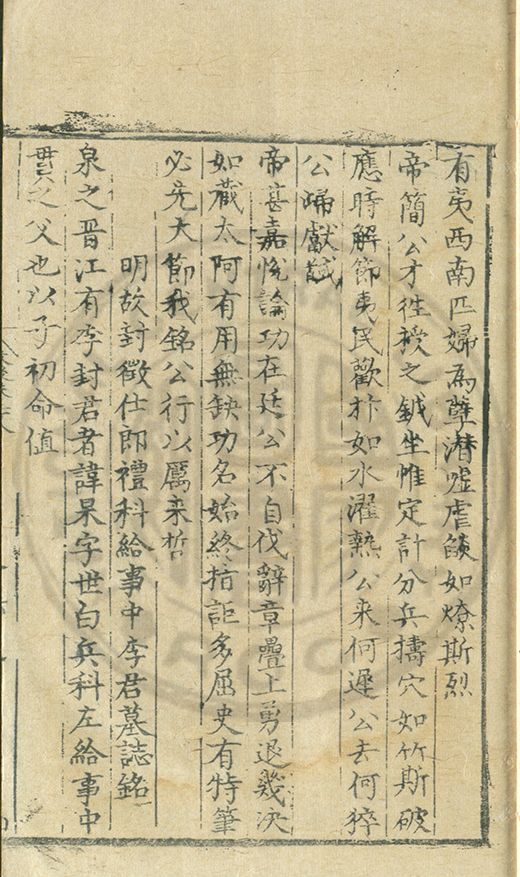 有夷西南匹婦為孽潜嘘虐燄如燎斯烈
帝簡公才徃授之鉞坐惟定計分兵擣穴如竹斯破
應時解節夷民歡抃如水濯熱公来何遲公去何猝
公歸獻馘
帝甚嘉悅論功在廷公不自伐辭章疊上勇退幾決
如藏太阿有用無缺功名始終指詎多屈史有特筆
必先大節我銘公行以厲来哲
明故封徵仕郎禮科給事中李君墓誌銘
泉之晋江有李封君者諱杲字世白兵科左給事中
貫之父也以子初命值